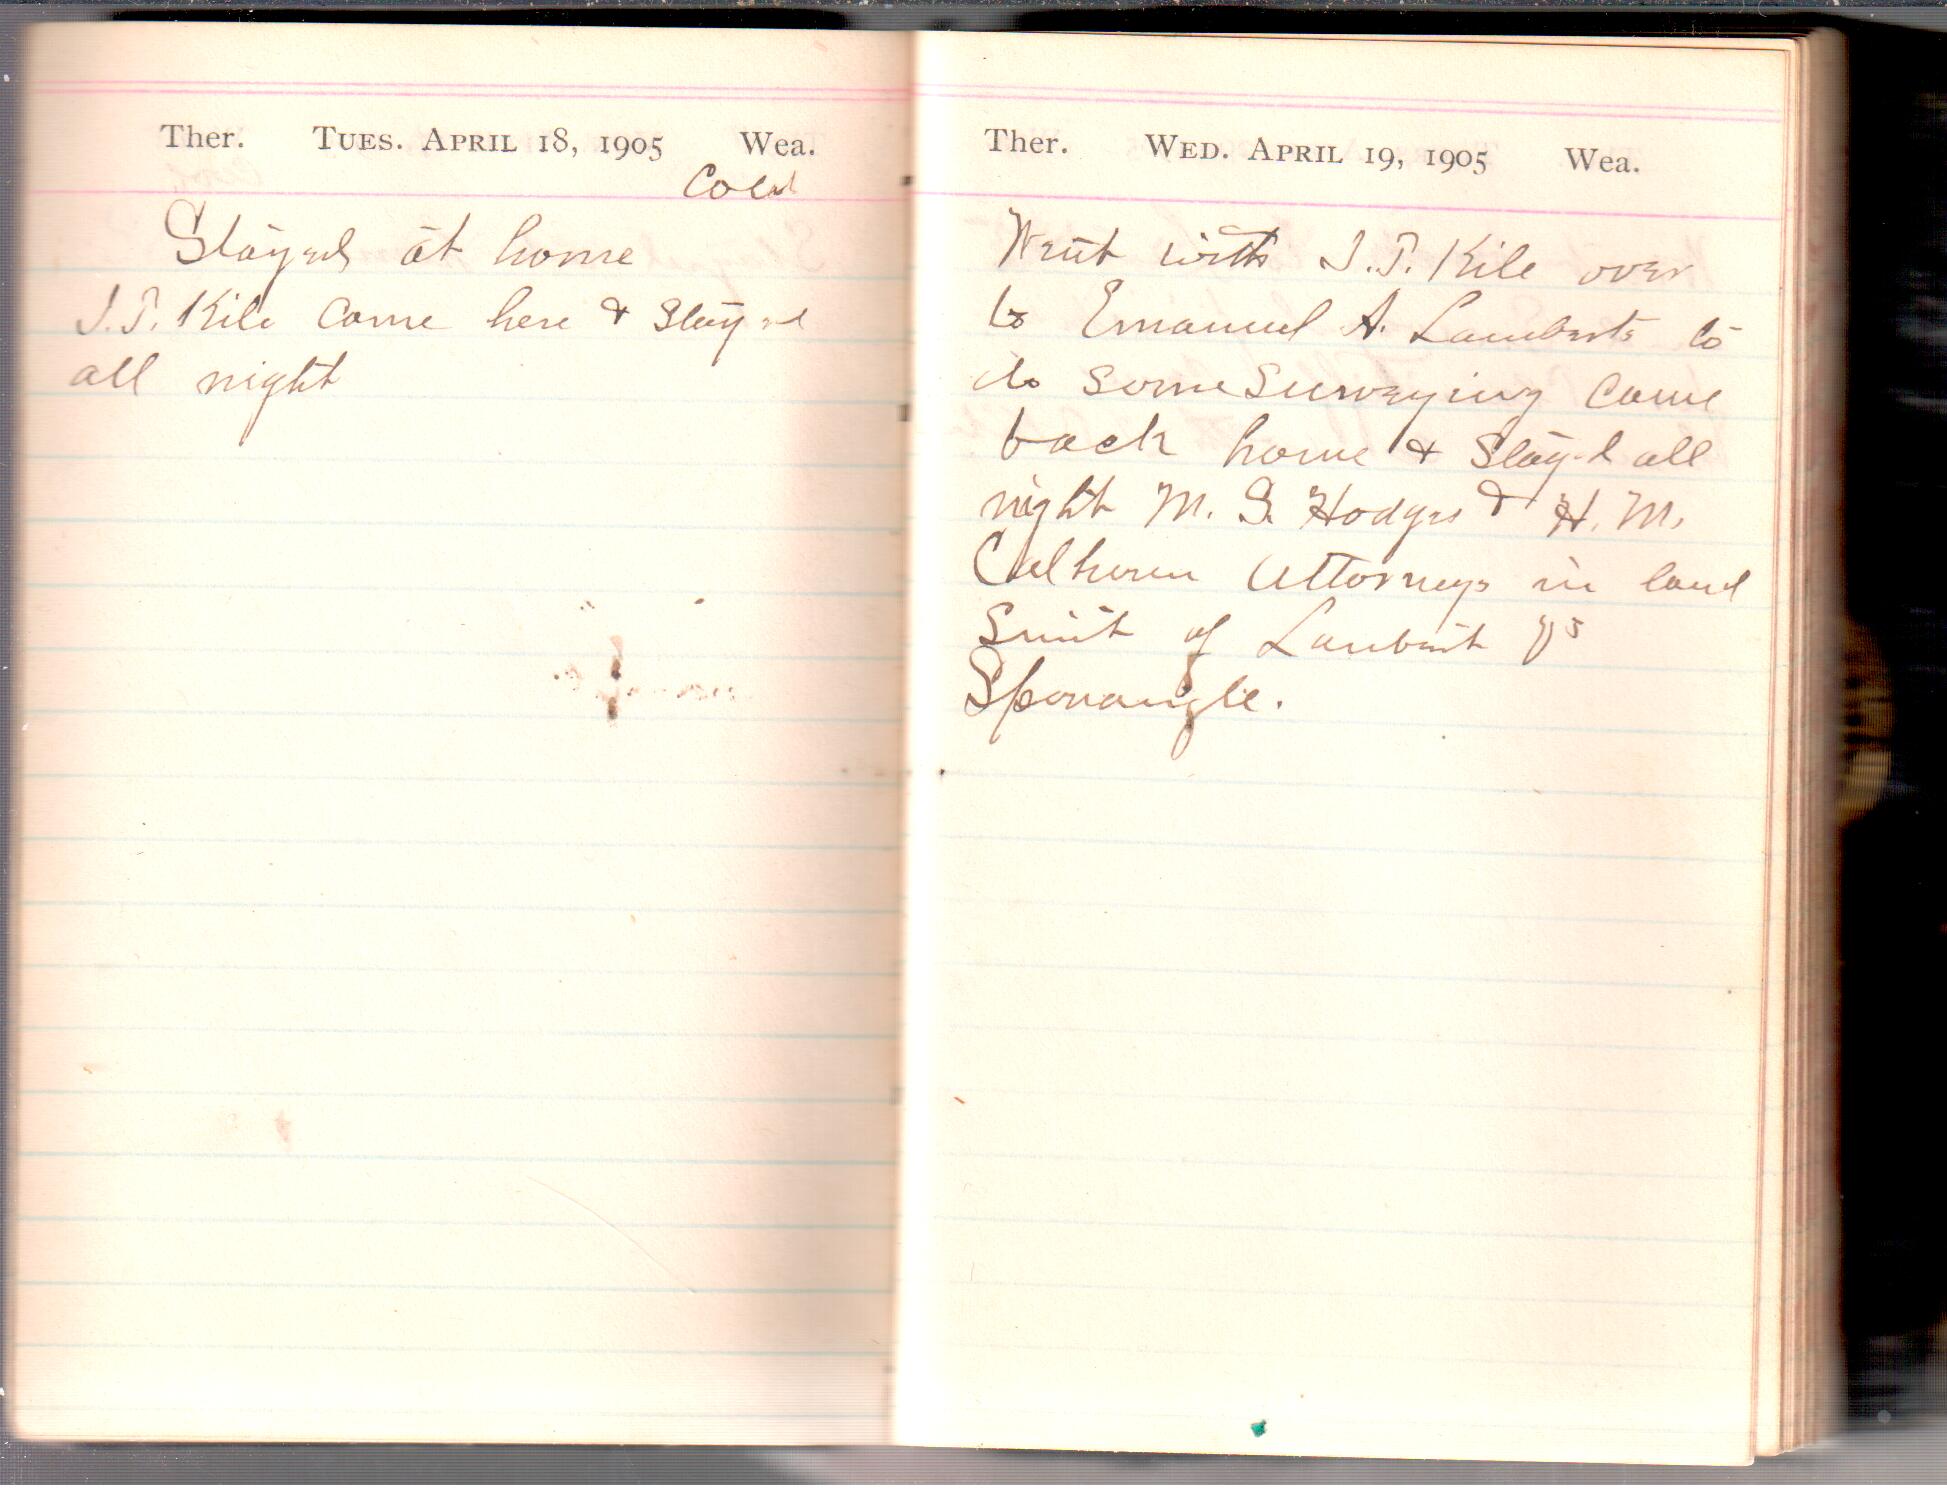 Ther. TUES. APRIL 18, 1905 Wea.
Cold
Stayed at home
I.T. Kile come here & Stayed
all night
Ther. WED. APRIL 19, 1905 Wea.
Went with I.T. Kile over
to Emanuel A. Lamberts to
do some Surveying Came
back home & Stayed all
night M. S. Hodges & H. M.
Calhoun Attorneys in land
Suit of Lambert vs
Sponaugle.